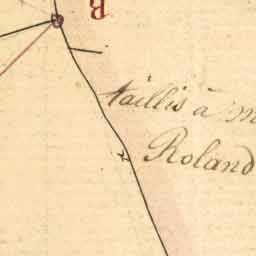 R
taillis à m
Roland